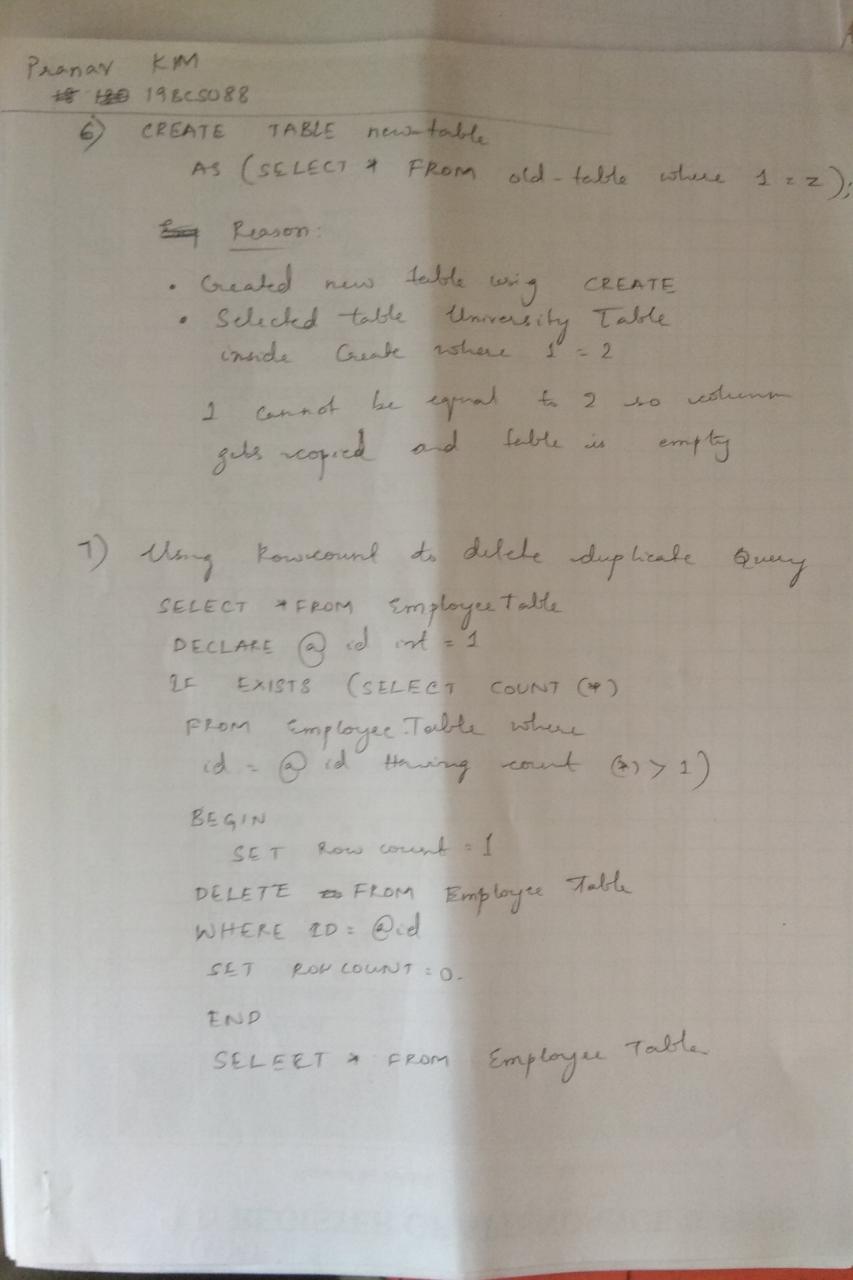 Pranav KM
19BCS088
6) CREATE TABLE new-table
AS (SELECT * FROM old-table where 1 = 2);
Reason:
• Created new table using CREATE
• Selected table University Table
inside Create where 1 = 2
1 cannot be equal to 2 so column
gets copied and table is empty
7) Using Rowcount to delete duplicate Query
SELECT * FROM Employee Table
DECLARE @ id int = 1
IF EXISTS (SELECT COUNT (*)
FROM Employee Table where
id = @ id Having count (*) > 1)
BEGIN
SET Row count = 1
DELETE FROM Employee Table
WHERE ID = @id
SET ROW COUNT = 0.
END
SELECT * FROM Employee Table